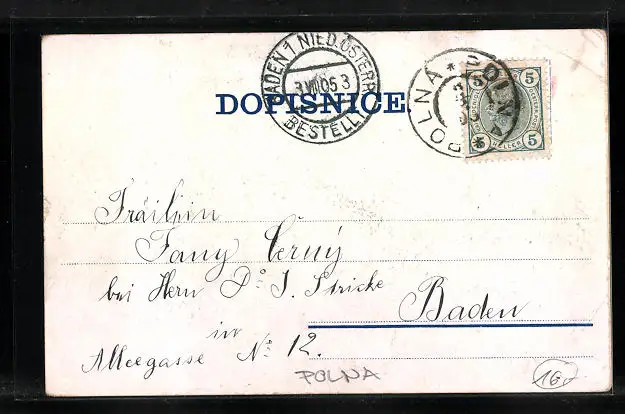 BADEN 1 NIED. ÖSTERR.
3 VII 05 3
BESTELLT
DOPISNICE.
POLNA * POLNÁ *
5 5
5 5
HELLER
Fräilein
Fany Černý
bei Hern Dº J. Stricke
Baden
in
Alleegasse Nº 12.
POLNA
16